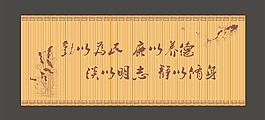 勤以為民 廉以养德
淡以明志 静以修身